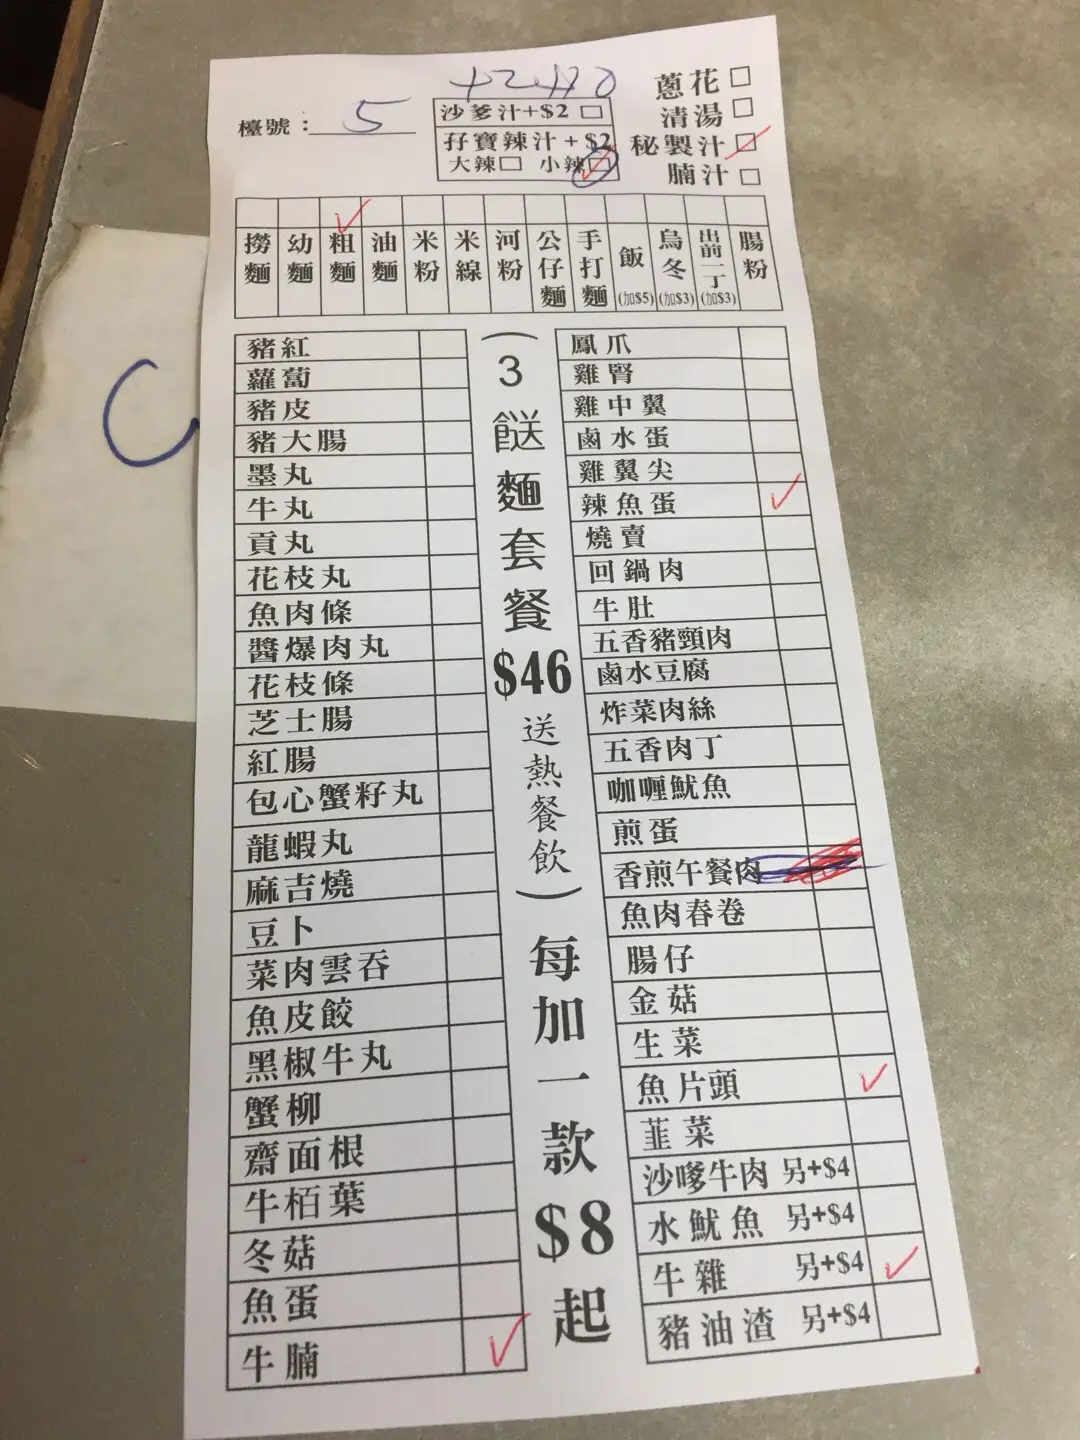 蔥花
清湯
秘製汁
腩汁
檯號： 5
沙爹汁+$2
孖寶辣汁+$2
大辣 小辣
撈麵
幼麵
粗麵
油麵
米粉
米線
河粉
公仔麵
手打麵
飯(加$5)
烏冬(加$3)
出前一丁(加$3)
腸粉
豬紅
蘿蔔
豬皮
豬大腸
墨丸
牛丸
貢丸
花枝丸
魚肉條
醬爆肉丸
花枝條
芝士腸
紅腸
包心蟹籽丸
龍蝦丸
麻吉燒
豆卜
菜肉雲吞
魚皮餃
黑椒牛丸
蟹柳
齋面根
牛栢葉
冬菇
魚蛋
牛腩
(3餸麵套餐$46送熱餐飲)每加一款$8起
鳳爪
雞腎
雞中翼
鹵水蛋
雞翼尖
辣魚蛋
燒賣
回鍋肉
牛肚
五香豬頸肉
鹵水豆腐
炸菜肉絲
五香肉丁
咖喱魷魚
煎蛋
香煎午餐肉
魚肉春卷
腸仔
金菇
生菜
魚片頭
韮菜
沙嗲牛肉 另+$4
水魷魚 另+$4
牛雜 另+$4
豬油渣 另+$4